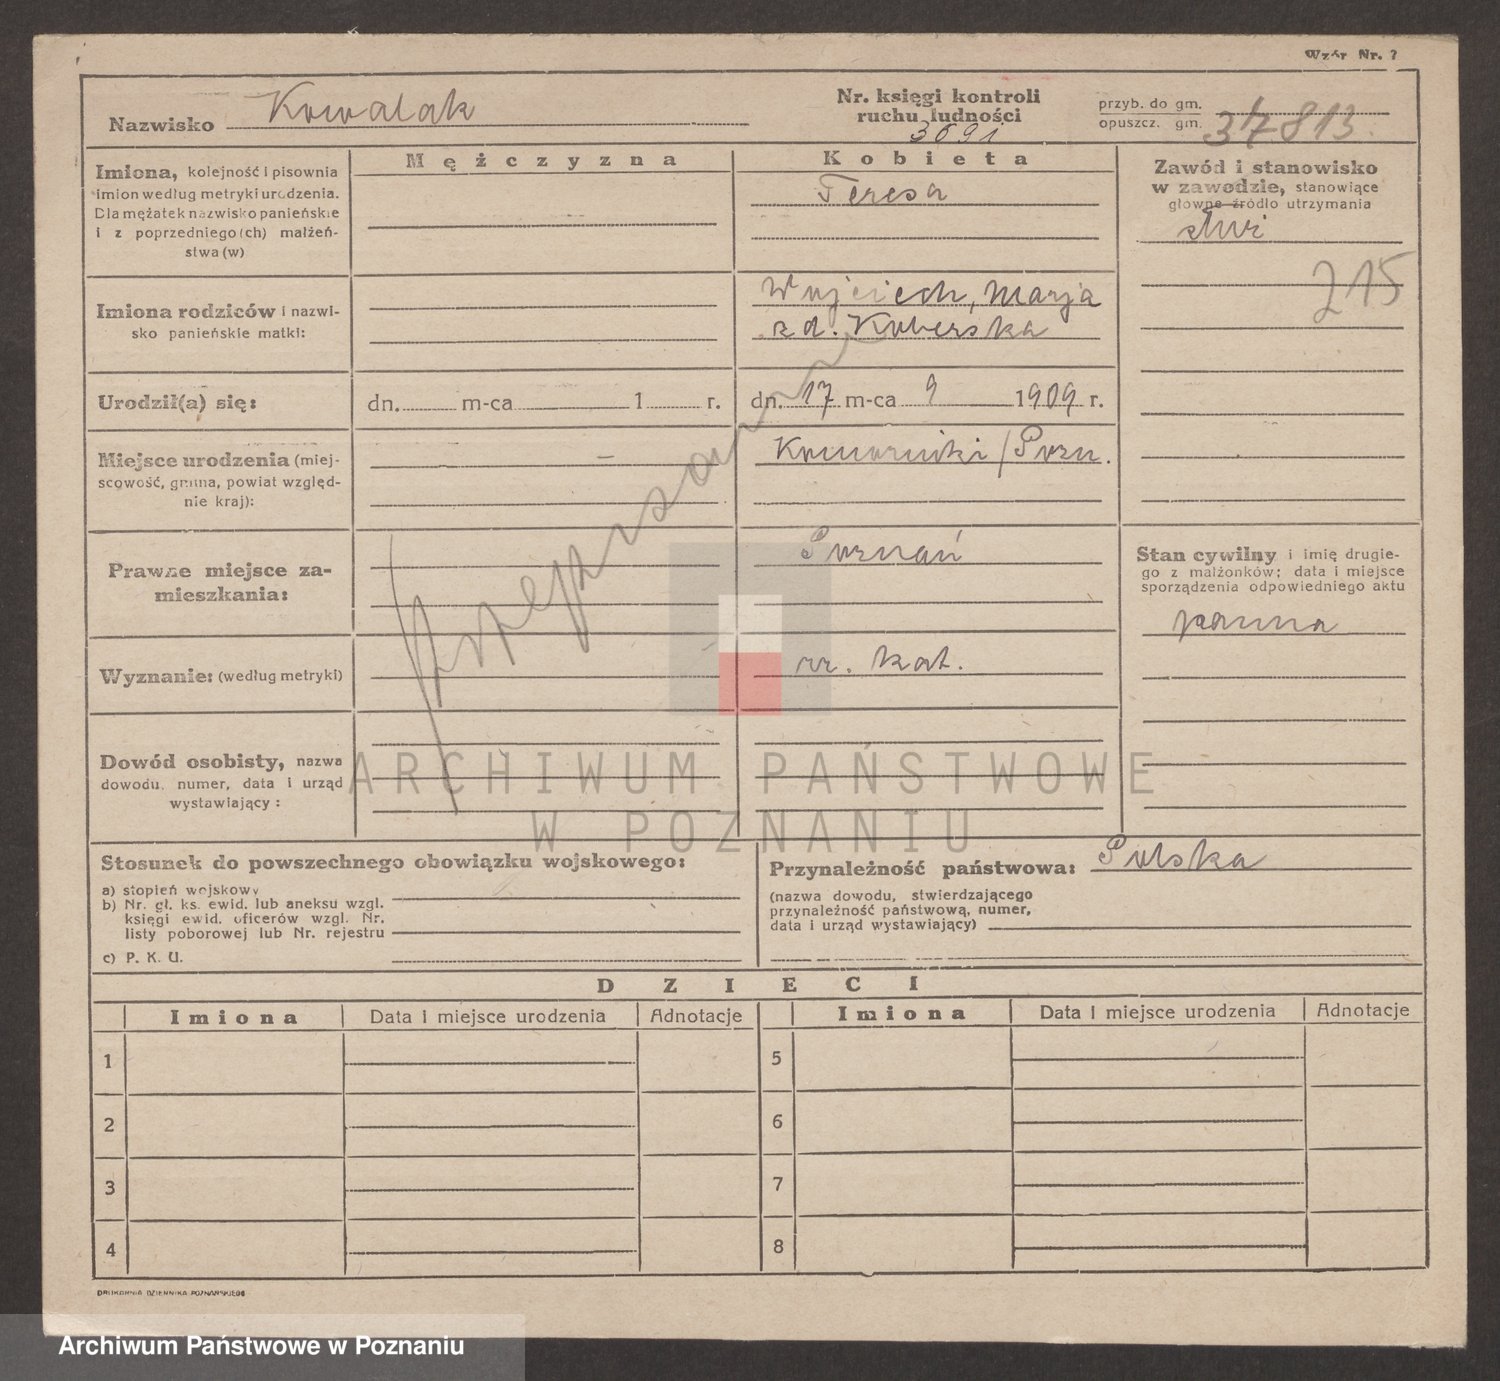 Wzór Nr. ?
Nazwisko Kowalak
Nr. księgi kontroli
ruchu ludności
3691
przyb. do gm.
opuszcz. gm.
37813.
Imiona, kolejność i pisownia
imion według metryki urodzenia.
Dla mężatek nazwisko panieńskie
i z poprzedniego(ch) małżeń-
stwa(w)
Mężczyzna
Kobieta
Teresa
Zawód i stanowisko
w zawodzie, stanowiące
główne źródło utrzymania
215
Imiona rodziców i nazwi-
sko panieńskie matki:
Wojciech, Marja
zd. Koberska
Urodził(a) się:
dn. m-ca 1 r.
dn. 17 m-ca 9 1909 r.
Miejsce urodzenia (miej-
scowość, gmina, powiat względ-
nie kraj):
Komorniki / Pozn.
Prawne miejsce za-
mieszkania:
Poznań
Stan cywilny i imię drugie-
go z małżonków; data i miejsce
sporządzenia odpowiedniego aktu
panna
Wyznanie: (według metryki)
rz. kat.
Dowód osobisty, nazwa
dowodu, numer, data i urząd
wystawiający:
ARCHIWUM PAŃSTWOWE
W POZNANIU
Stosunek do powszechnego obowiązku wojskowego:
a) stopień wojskowy
b) Nr. gł. ks. ewid. lub aneksu wzgl.
księgi ewid. oficerów wzgl. Nr.
listy poborowej lub Nr. rejestru
c) P. K. U.
Przynależność państwowa: Polska
(nazwa dowodu, stwierdzającego
przynależność państwową, numer,
data i urząd wystawiający)
DZIECI
Imiona Data i miejsce urodzenia Adnotacje Imiona Data i miejsce urodzenia Adnotacje
1 5
2 6
3 7
4 8
DRUKARNIA DZIENNIKA POZNAŃSKIEGO
Archiwum Państwowe w Poznaniu